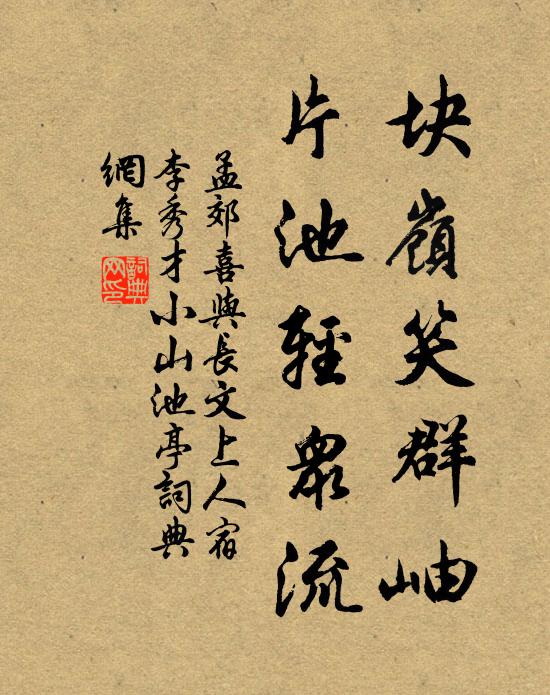 块嶺笑群岫
片池輕眾流
孟郊喜與長文上人宿
李秀才小山池亭詞典
網集
詞典網印